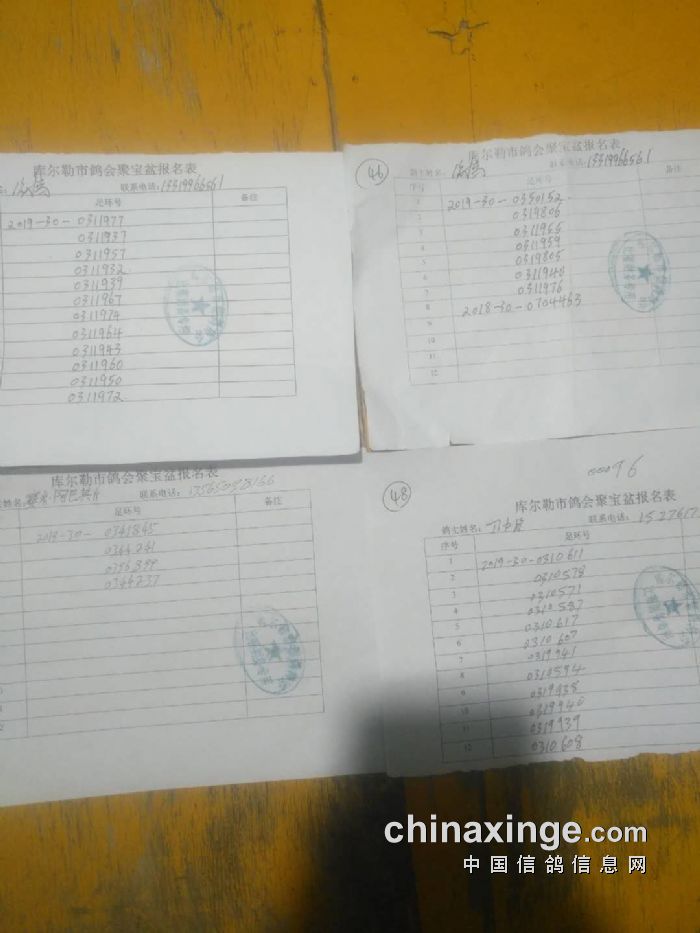 库尔勒市鸽会聚宝盆报名表
联系电话: 13319966561
足环号 备注
2019-30-0311977
0311937
0311957
0311932
0311939
0311967
0311974
0311964
0311943
0311960
0311950
0311972
46
库尔勒市鸽会聚宝盆报名表
鸽主姓名: 联系电话: 13319966561
序号 足环号 备注
1 2019-30-0350152
2 0319806
3 0311966
4 0311959
5 0319805
6 0311940
7 0311976
8 2018-30-0704463
9
10
11
12
库尔勒市鸽会聚宝盆报名表
姓名: 联系电话:
足环号 备注
0341865
0344241
0344237
48
00096
库尔勒市鸽会聚宝盆报名表
鸽主姓名: 联系电话: 1527617
序号 足环号
1 2019-30-0310611
2 0310578
3 0310571
4 0310587
5 0310617
6 0310607
7 0319941
8 0310594
9 0319938
10 0319940
11 0319939
12 0310608
chinaxinge.com
中国信鸽信息网